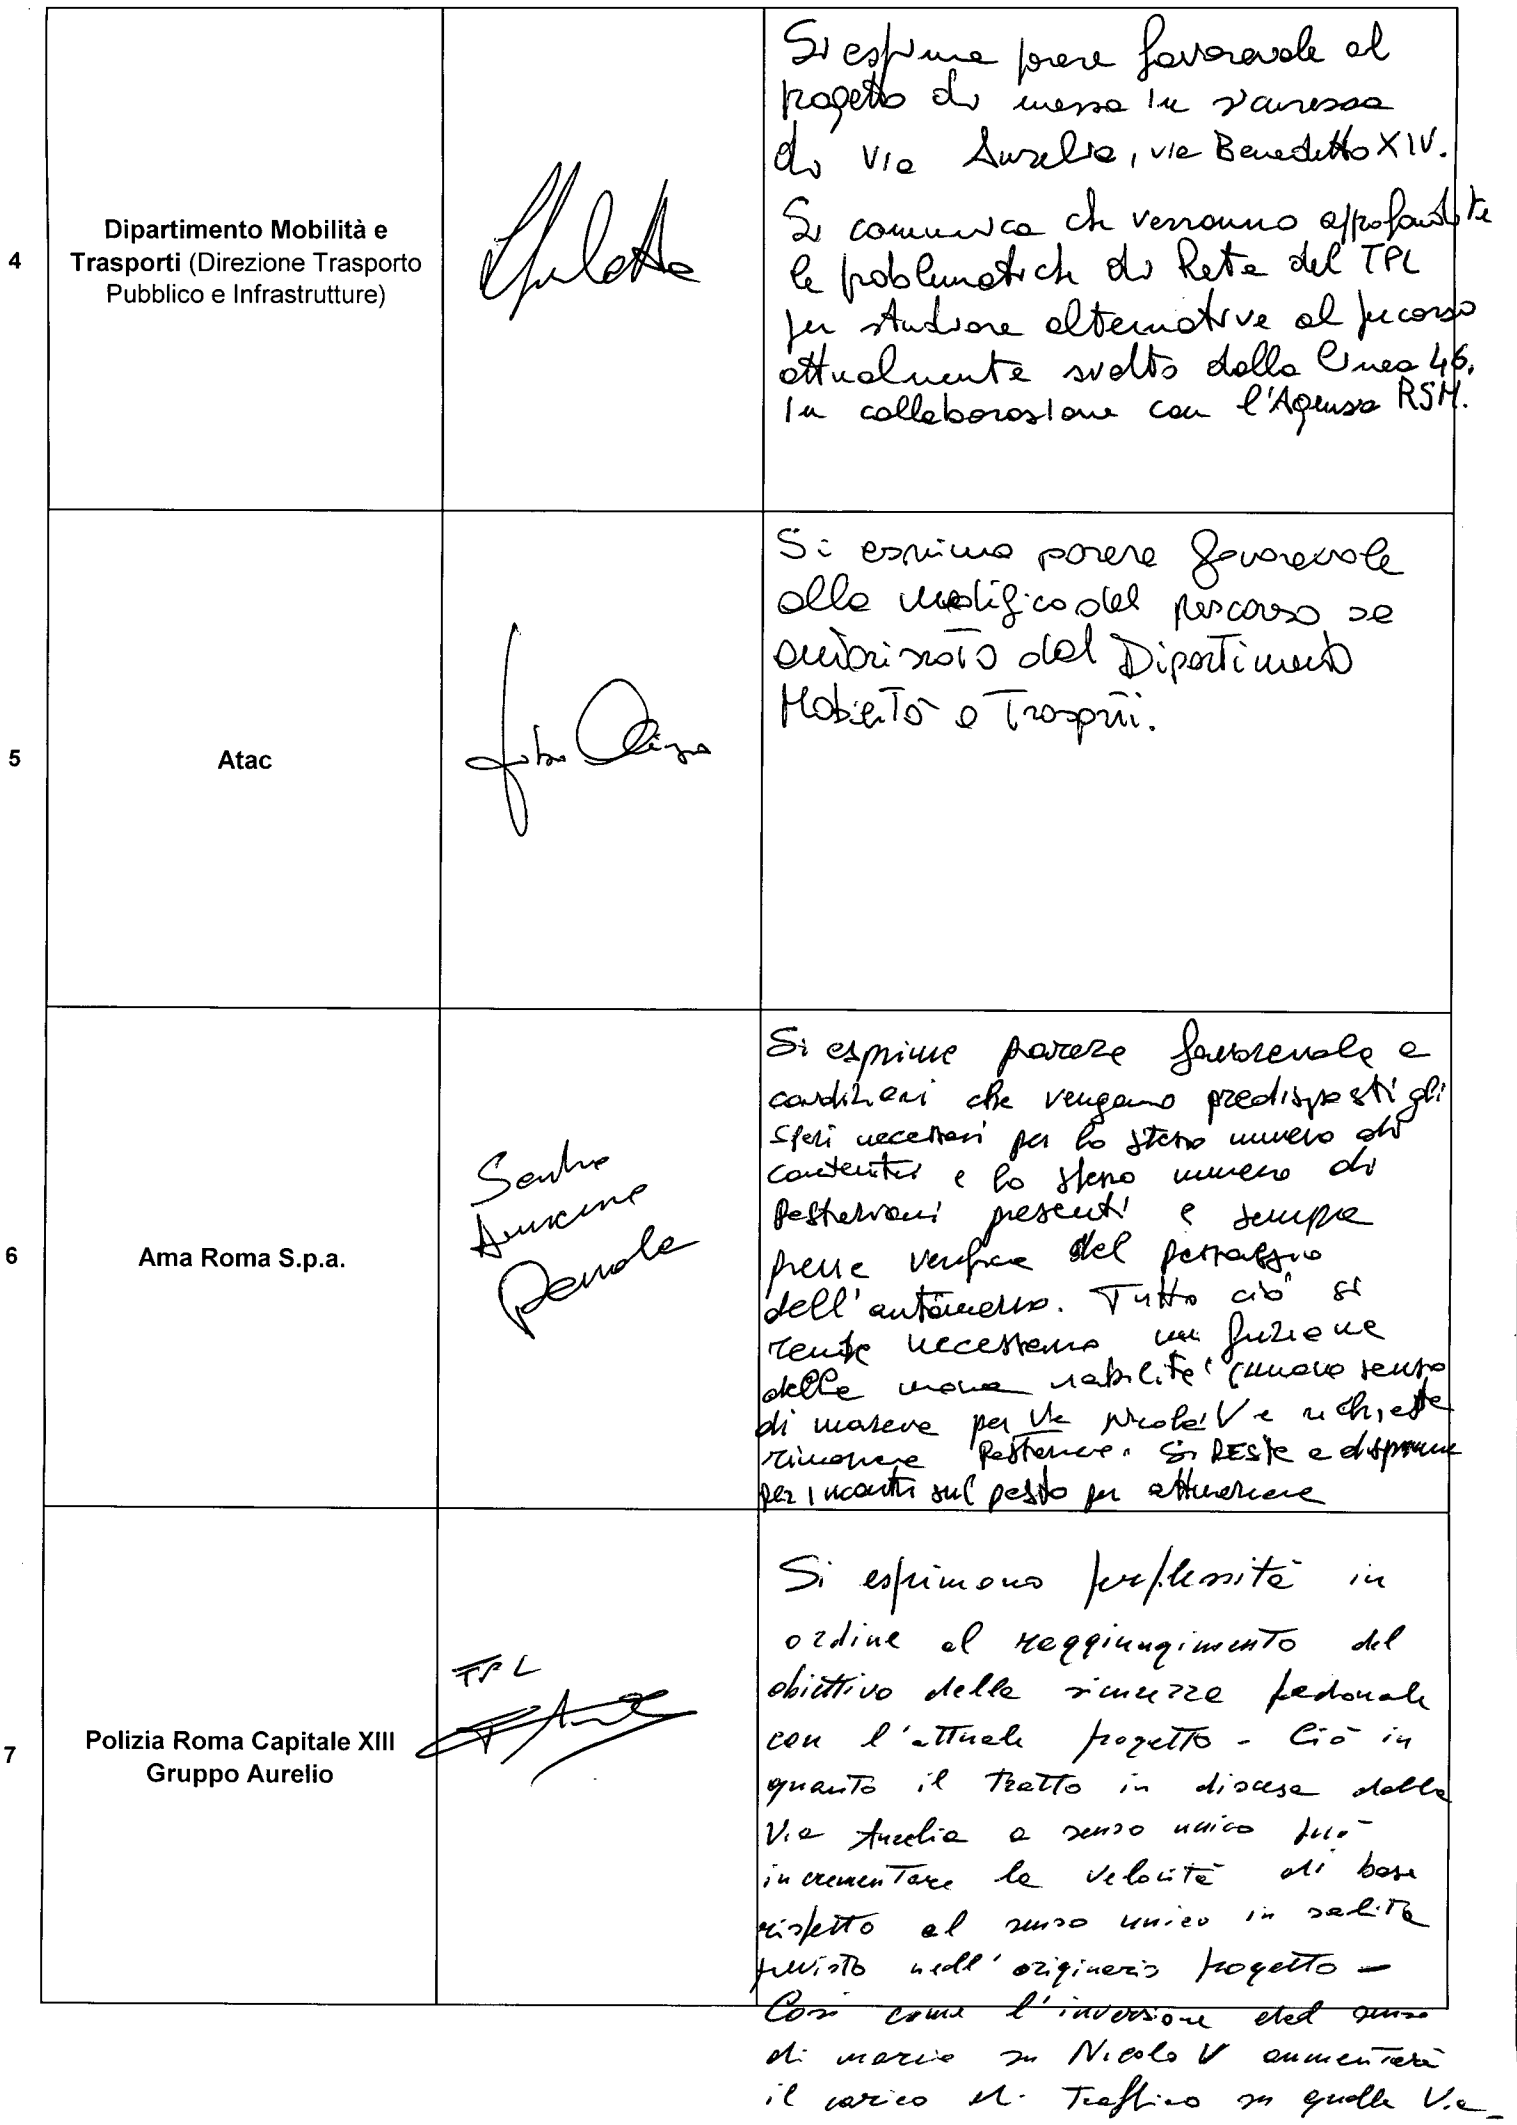 4
Dipartimento Mobilità e
Trasporti (Direzione Trasporto
Pubblico e Infrastrutture)
Si esprime parere favorevole al
progetto di messa in sicurezza
di Via Aurelia, via Benedetto XIV.
Si comunica che verranno approfondite
le problematiche di Rete del TPL
per studiare alternative al percorso
attualmente svolto dalla linea 46.
In collaborazione con l'Agenzia RSM.
5
Atac
Si esprime parere favorevole
alla modifica del percorso se
autorizzato dal Dipartimento
Mobilità e Trasporti.
6
Ama Roma S.p.a.
Si esprime parere favorevole a
condizioni che vengano predisposti gli
spazi necessari per lo stesso numero di
contenitori e lo stesso numero di
postazioni presenti e sempre
previe verifica del passaggio
dell'automezzo. Tutto ciò si
rende necessario in funzione
della nuova viabilità (nuovo senso
di marcia per Via Nicolò V e richiesta
rimozione postazione. Si resta a disposizione
per incontri sul posto per attuazione
7
Polizia Roma Capitale XIII
Gruppo Aurelio
Si esprimono perplessità in
ordine al raggiungimento del
obiettivo della sicurezza pedonale
con l'attuale progetto - Ciò in
quanto il tratto in discesa della
Via Aurelia a senso unico può
incrementare la velocità di base
rispetto al senso unico in salita
previsto nell'originario progetto -
Così come l'inversione del senso
di marcia su Nicolò V aumenterà
il carico di traffico su quella Via -